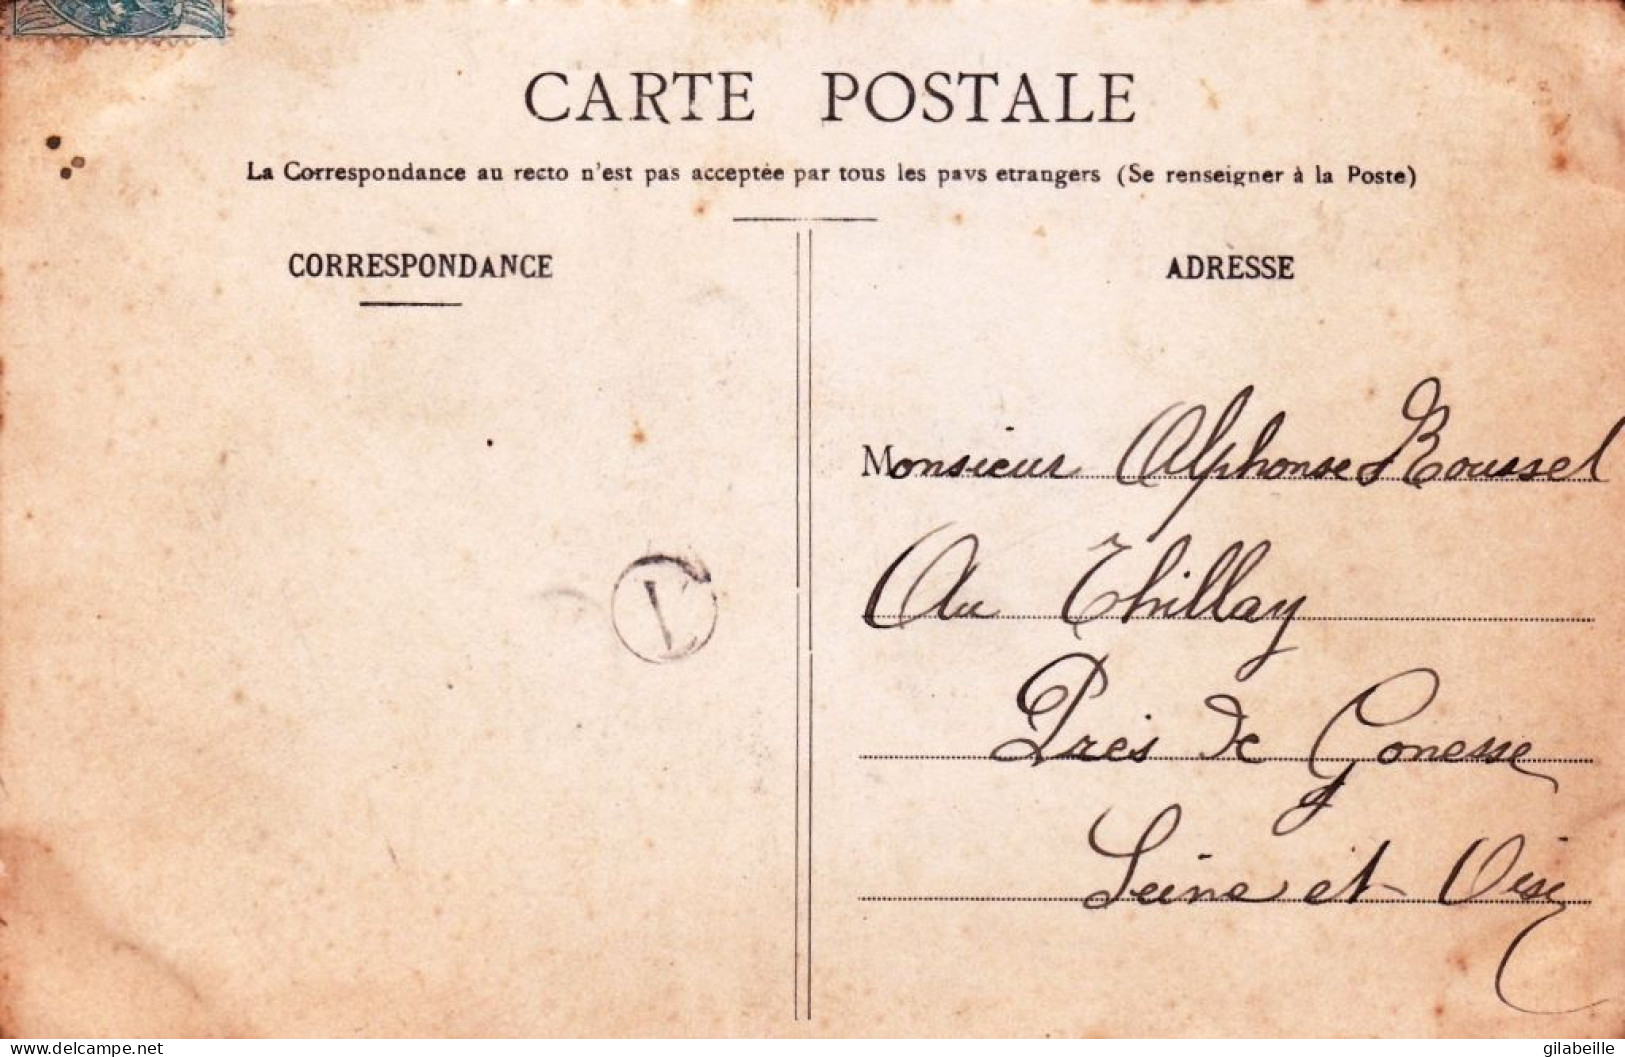 CARTE POSTALE
La Correspondance au recto n'est pas acceptée par tous les pays etrangers (Se renseigner à la Poste)
CORRESPONDANCE
ADRESSE
Monsieur Alphonse Roussel
Au Thillay
Près de Gonesse
Seine et Oise
delcampe.net
gilabeille